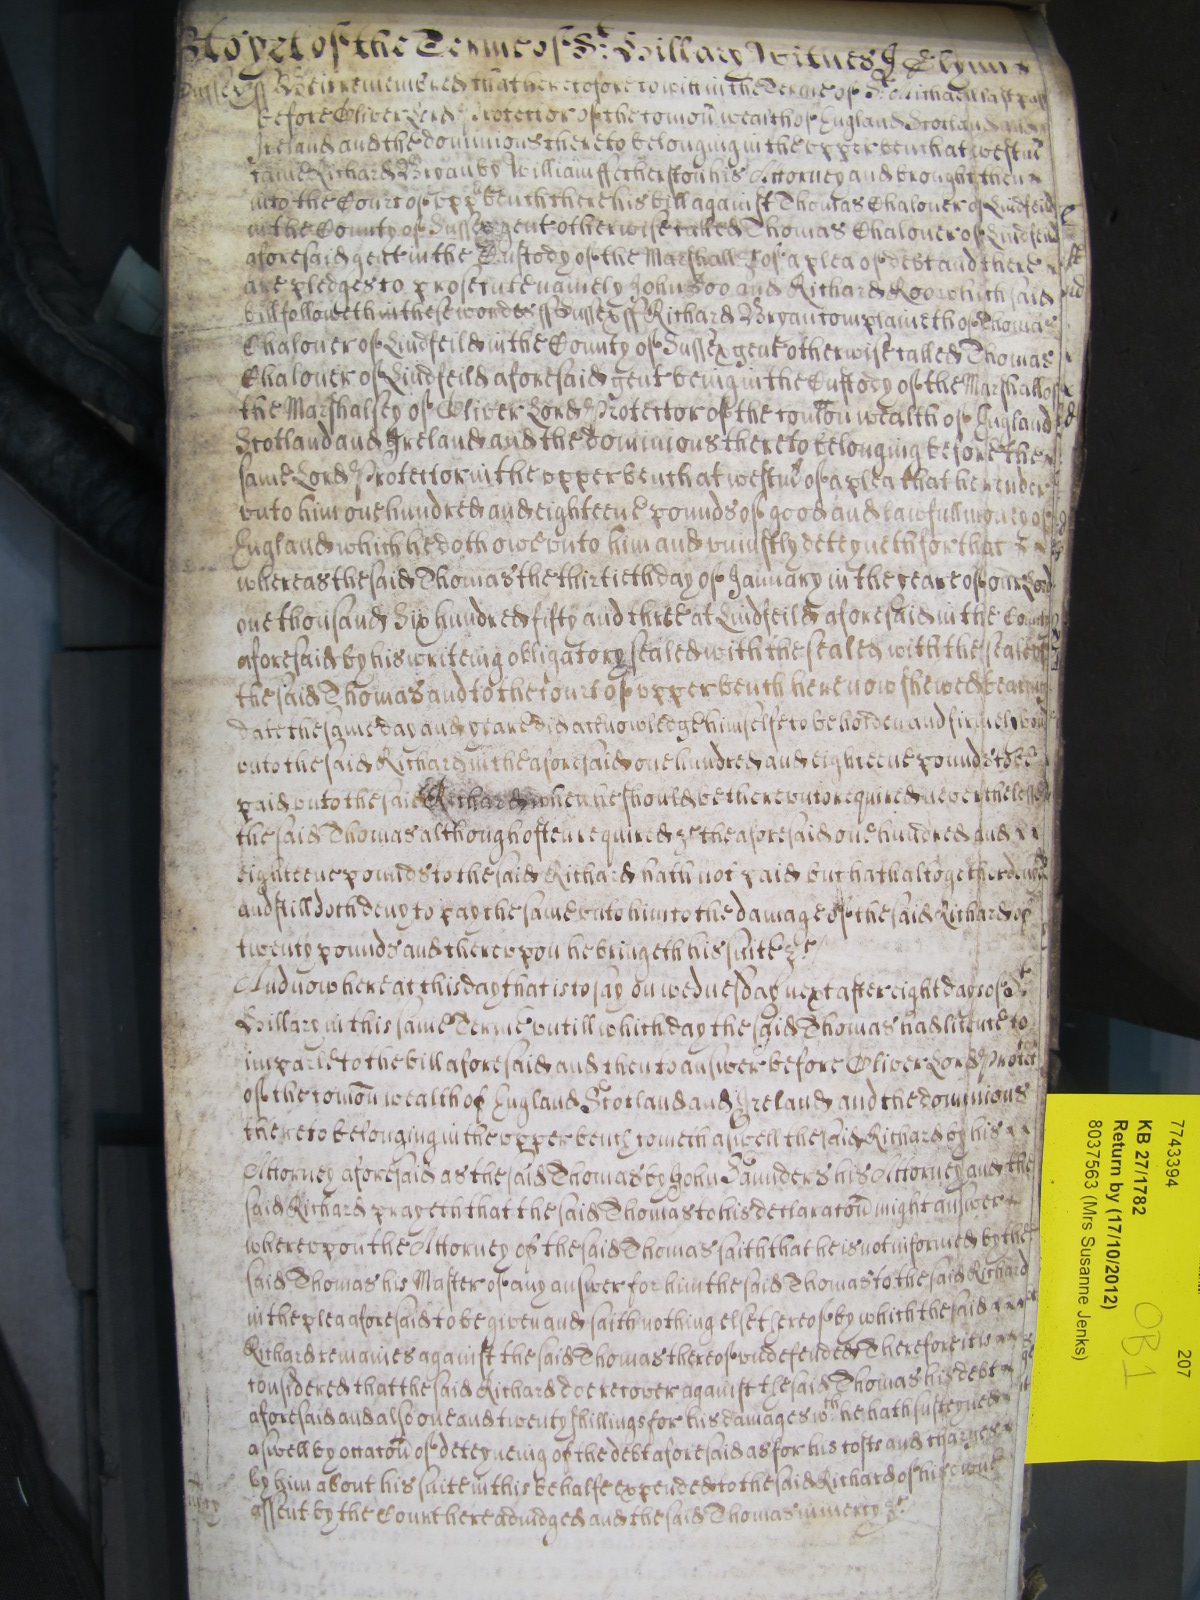 yet of the Terme of St. Hillary Witnes J Glynn
Sussex ss Be it remembred that heretofore to wit in the Terme of St. Michael last past
before Oliver Lord Protector of the comon wealth of England Scotland and
Ireland and the dominions thereto belonging in the upper bench at westm
came Richard Bryan by William ffetherston his Attorney and brought then
into the Court of upp bench there his bill against Thomas Chaloner of Lindfeild
in the County of Sussex gent otherwise called Thomas Chaloner of Lindfeild
aforesaid gent in the Custody of the Marshall &c of a plea of debt and there
are pledges to prosecute namely John Doo and Richard Roo which said
bill followeth in these words ss Sussex ss Richard Bryan complaineth of Thomas
Chaloner of Lindfeild in the County of Sussex gent otherwise called Thomas
Chaloner of Lindfeild aforesaid gent being in the Custody of the Marshall of
the Marshalsey of Oliver Lord Protector of the comon wealth of England
Scotland and Ireland and the dominions thereto belonging before the
same Lord Protector in the upper bench at westm of a plea that he render
unto him one hundred and eighteene pounds of good and lawfull money of
England which he doth owe unto him and uniustly deteyneth for that
whereas the said Thomas the thirtieth day of January in the yeare of our Lord
one thousand Six hundred fifty and three at Lindfeild aforesaid in the County
aforesaid by his writeing obligatory sealed with the seale
the said Thomas and to the court of upper bench here now shewed beareing
date the same day and yeare did acknowledge himselfe to be holden and firmely bound
unto the said Richard in the aforesaid one hundred and eighteene pounds to be
paid unto the said Richard when he should be thereunto required neverthelesse
the said Thomas although often required &c the aforesaid one hundred and
eighteene pounds to the said Richard hath not paid but hath altogether denyed
and still doth deny to pay the same unto him to the damage of the said Richard of
twenty pounds and thereupon he bringeth his suite &c
And now here at this day that is to say on wednesday next after eight dayes of St
Hillary in this same Terme untill which day the said Thomas had licence to
imparle to the bill aforesaid and then to answer before Oliver Lord Protect
of the comon wealth of England Scotland and Ireland and the dominions
thereto belonging in the upper bench cometh aswell the said Richard by his
Attorney aforesaid as the said Thomas by John Saunders his Attorney and the
said Richard prayeth that the said Thomas to his declaraton might answer
whereupon the Attorney of the said Thomas saith that he is not informed by the
said Thomas his Master of any answer for him the said Thomas to the said Richard
in the plea aforesaid to be given and saith nothing else thereof by which the said
Richard remaines against the said Thomas thereof undefended Therefore it is
considered that the said Richard doe recover against the said Thomas his debt
aforesaid and also one and twenty shillings for his damages wch he hath susteyned
aswell by occaton of deteyneing of the debt aforesaid as for his costs and charges
by him about his suite in this behalfe expended to the said Richard of his owne
assent by the Court here adiudged and the said Thomas in mercy &c
7743394 207
KB 27/1782
Return by (17/10/2012)
8037563 (Mrs Susanne Jenks)
OB1